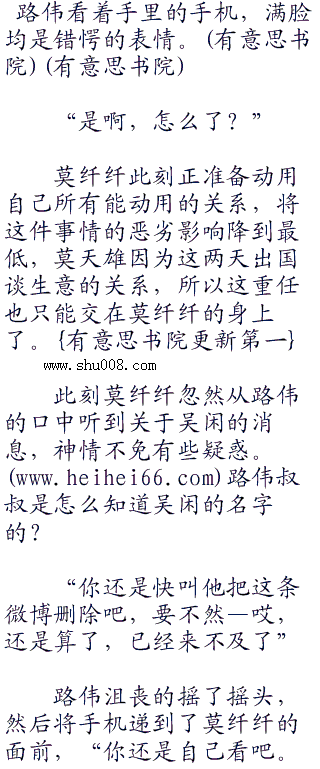 路伟看着手里的手机，满脸
均是错愕的表情。(有意思书
院)(有意思书院)
“是啊，怎么了？”
莫纤纤此刻正准备动用
自己所有能动用的关系，将
这件事情的恶劣影响降到最
低，莫天雄因为这两天出国
谈生意的关系，所以这重任
也只能交在莫纤纤的身上
了。{有意思书院更新第一}
www.shu008.com
此刻莫纤纤忽然从路伟
的口中听到关于吴闲的消
息，神情不免有些疑惑。
(www.heihei66.com)路伟叔
叔是怎么知道吴闲的名字
的？
“你还是快叫他把这条
微博删除吧，要不然—哎，
还是算了，已经来不及了”
路伟沮丧的摇了摇头，
然后将手机递到了莫纤纤的
面前，“你还是自己看吧。